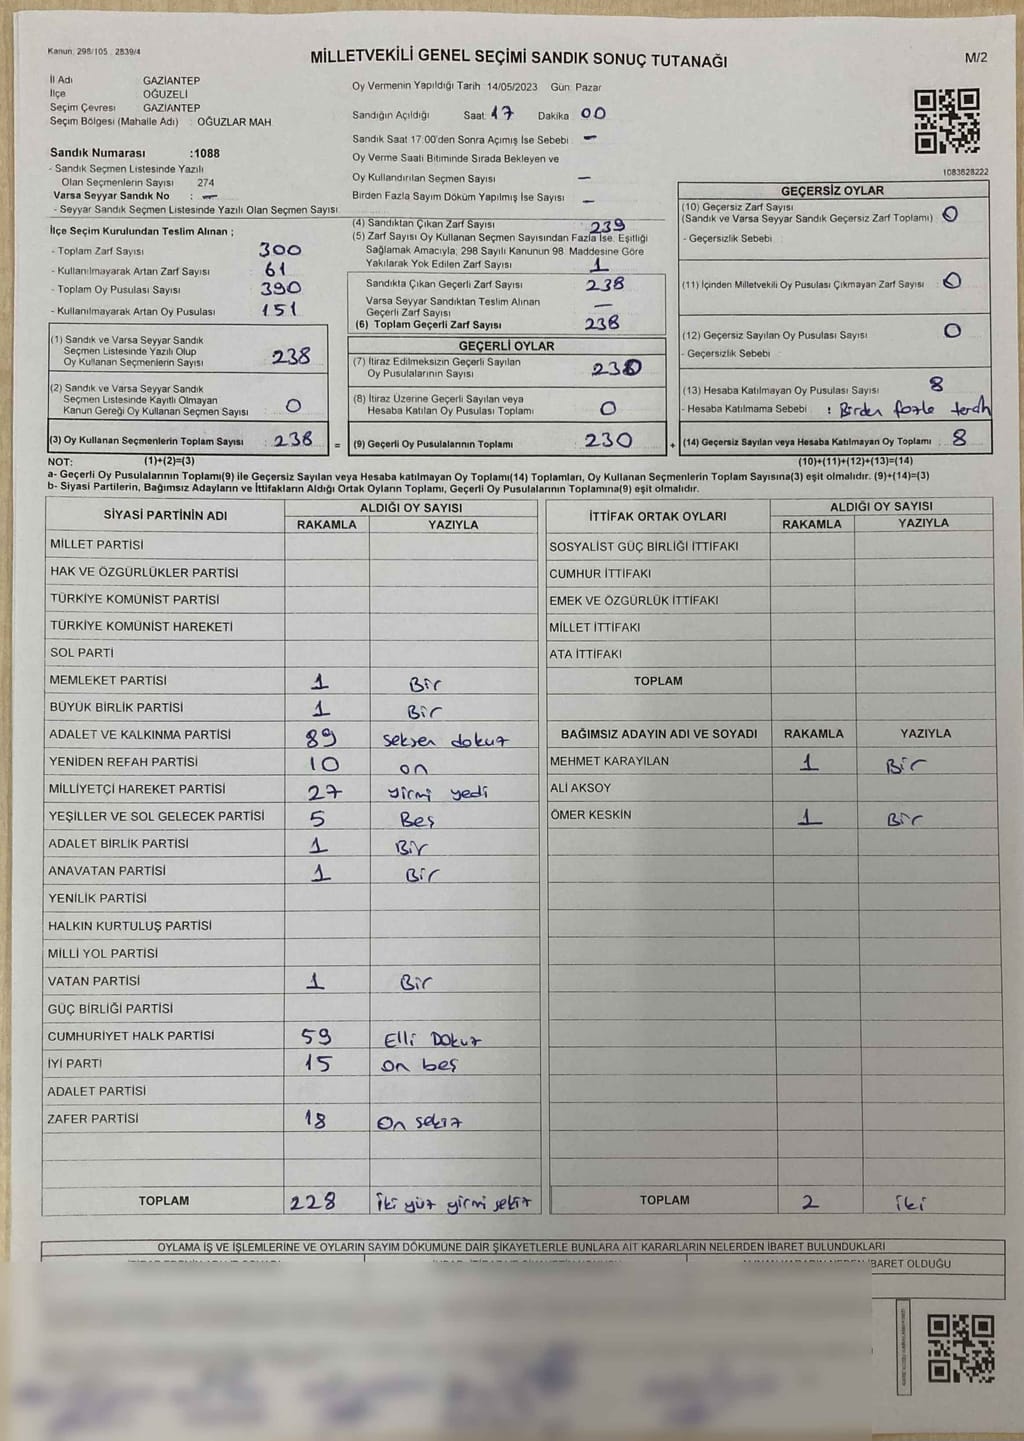 Kanun: 298/105 2839/4
MİLLETVEKİLİ GENEL SEÇİMİ SANDIK SONUÇ TUTANAĞI
M/2
İl Adı GAZİANTEP
İlçe OĞUZELİ
Seçim Çevresi GAZİANTEP
Seçim Bölgesi (Mahalle Adı) : OĞUZLAR MAH.
Sandık Numarası :1088
- Sandık Seçmen Listesinde Yazılı
Olan Seçmenlerin Sayısı 274
Varsa Seyyar Sandık No : —
- Seyyar Sandık Seçmen Listesinde Yazılı Olan Seçmen Sayısı
İlçe Seçim Kurulundan Teslim Alınan ;
- Toplam Zarf Sayısı 300
- Kullanılmayarak Artan Zarf Sayısı 61
- Toplam Oy Pusulası Sayısı 390
- Kullanılmayarak Artan Oy Pusulası 151
(1) Sandık ve Varsa Seyyar Sandık
Seçmen Listesinde Yazılı Olup
Oy Kullanan Seçmenlerin Sayısı 238
(2) Sandık ve Varsa Seyyar Sandık
Seçmen Listesinde Kayıtlı Olmayan
Kanun Gereği Oy Kullanan Seçmen Sayısı 0
(3) Oy Kullanan Seçmenlerin Toplam Sayısı 238 =
Oy Vermenin Yapıldığı Tarih 14/05/2023 Gün: Pazar
Sandığın Açıldığı Saat 17 Dakika 00
Sandık Saat 17:00'den Sonra Açımış İse Sebebi —
Oy Verme Saati Bitiminde Sırada Bekleyen ve
Oy Kullandırılan Seçmen Sayısı —
Birden Fazla Sayım Döküm Yapılmış İse Sayısı —
(4) Sandıktan Çıkan Zarf Sayısı 239
(5) Zarf Sayısı Oy Kullanan Seçmen Sayısından Fazla İse, Eşitliği
Sağlamak Amacıyla, 298 Sayılı Kanunun 98. Maddesine Göre
Yakılarak Yok Edilen Zarf Sayısı 1
Sandıkta Çıkan Geçerli Zarf Sayısı 238
Varsa Seyyar Sandıktan Teslim Alınan
Geçerli Zarf Sayısı —
(6) Toplam Geçerli Zarf Sayısı 238
GEÇERLİ OYLAR
(7) İtiraz Edilmeksizin Geçerli Sayılan
Oy Pusulalarının Sayısı 230
(8) İtiraz Üzerine Geçerli Sayılan veya
Hesaba Katılan Oy Pusulası Toplamı 0
(9) Geçerli Oy Pusulalarının Toplamı 230 +
1083828222
GEÇERSİZ OYLAR
(10) Geçersiz Zarf Sayısı
(Sandık ve Varsa Seyyar Sandık Geçersiz Zarf Toplamı) 0
- Geçersizlik Sebebi
(11) İçinden Milletvekili Oy Pusulası Çıkmayan Zarf Sayısı 0
(12) Geçersiz Sayılan Oy Pusulası Sayısı 0
- Geçersizlik Sebebi
(13) Hesaba Katılmayan Oy Pusulası Sayısı 8
- Hesaba Katılmama Sebebi : Birden fazla tercih
(14) Geçersiz Sayılan veya Hesaba Katılmayan Oy Toplamı 8
NOT: (1)+(2)=(3) (10)+(11)+(12)+(13)=(14)
a- Geçerli Oy Pusulalarının Toplamı(9) ile Geçersiz Sayılan veya Hesaba katılmayan Oy Toplamı(14) Toplamları, Oy Kullanan Seçmenlerin Toplam Sayısına(3) eşit olmalıdır. (9)+(14)=(3)
b- Siyasi Partilerin, Bağımsız Adayların ve İttifakların Aldığı Ortak Oyların Toplamı, Geçerli Oy Pusulalarının Toplamına(9) eşit olmalıdır.
SİYASİ PARTİNİN ADI ALDIĞI OY SAYISI
RAKAMLA YAZIYLA
MİLLET PARTİSİ
HAK VE ÖZGÜRLÜKLER PARTİSİ
TÜRKİYE KOMÜNİST PARTİSİ
TÜRKİYE KOMÜNİST HAREKETİ
SOL PARTİ
MEMLEKET PARTİSİ 1 Bir
BÜYÜK BİRLİK PARTİSİ 1 Bir
ADALET VE KALKINMA PARTİSİ 89 seksen dokuz
YENİDEN REFAH PARTİSİ 10 on
MİLLİYETÇİ HAREKET PARTİSİ 27 yirmi yedi
YEŞİLLER VE SOL GELECEK PARTİSİ 5 Beş
ADALET BİRLİK PARTİSİ 1 Bir
ANAVATAN PARTİSİ 1 Bir
YENİLİK PARTİSİ
HALKIN KURTULUŞ PARTİSİ
MİLLİ YOL PARTİSİ
VATAN PARTİSİ 1 Bir
GÜÇ BİRLİĞİ PARTİSİ
CUMHURİYET HALK PARTİSİ 59 Elli Dokuz
İYİ PARTİ 15 On beş
ADALET PARTİSİ
ZAFER PARTİSİ 18 On sekiz
TOPLAM 228 İki yüz yirmi sekiz
İTTİFAK ORTAK OYLARI ALDIĞI OY SAYISI
RAKAMLA YAZIYLA
SOSYALİST GÜÇ BİRLİĞİ İTTİFAKI
CUMHUR İTTİFAKI
EMEK VE ÖZGÜRLÜK İTTİFAKI
MİLLET İTTİFAKI
ATA İTTİFAKI
TOPLAM
BAĞIMSIZ ADAYIN ADI VE SOYADI RAKAMLA YAZIYLA
MEHMET KARAYILAN 1 Bir
ALİ AKSOY
ÖMER KESKİN 1 Bir
TOPLAM 2 iki
OYLAMA İŞ VE İŞLEMLERİNE VE OYLARIN SAYIM DÖKÜMÜNE DAİR ŞİKAYETLERLE BUNLARA AİT KARARLARIN NELERDEN İBARET BULUNDUKLARI
İBARET OLDUĞU